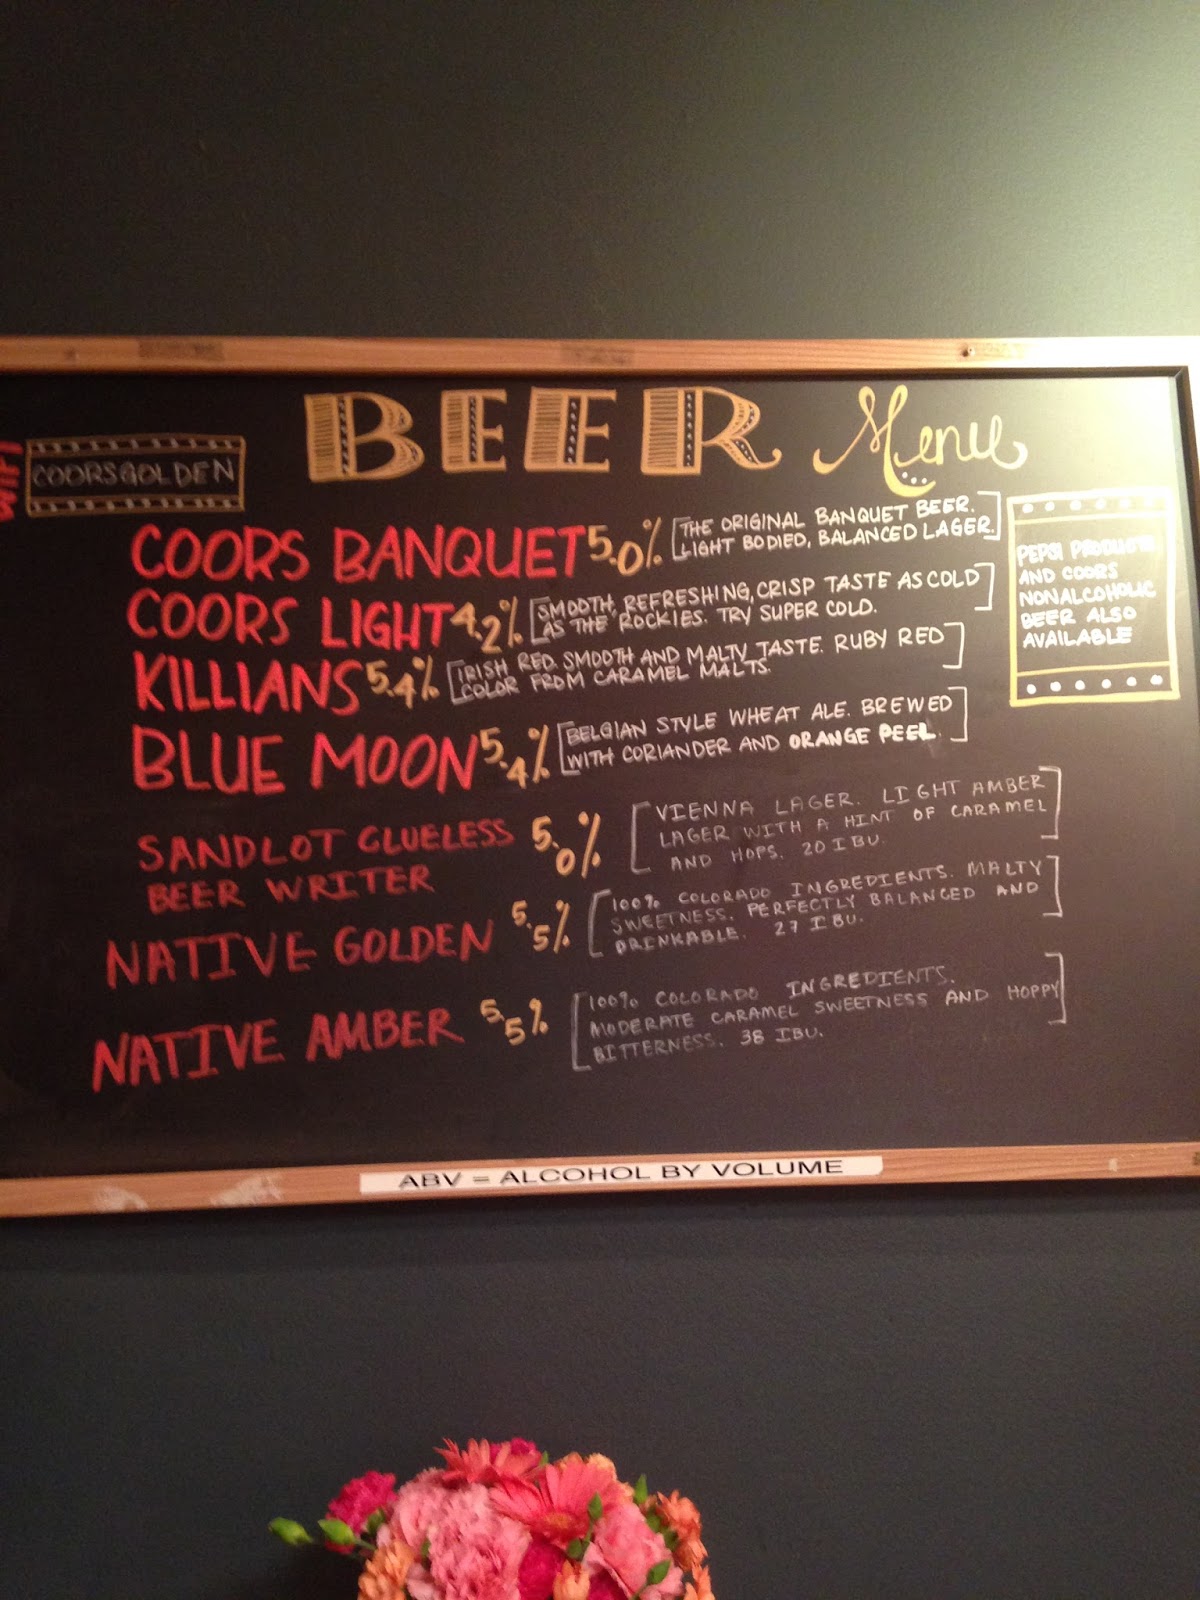 BEER Menu
WIFI
COORSGOLDEN
COORS BANQUET 5.0%
[THE ORIGINAL BANQUET BEER.
LIGHT BODIED, BALANCED LAGER.]
COORS LIGHT 4.2%
[SMOOTH, REFRESHING, CRISP TASTE AS COLD
AS THE ROCKIES. TRY SUPER COLD.]
KILLIANS 5.4%
[IRISH RED. SMOOTH AND MALTY TASTE. RUBY RED
COLOR FROM CARAMEL MALTS.]
BLUE MOON 5.4%
[BELGIAN STYLE WHEAT ALE. BREWED
WITH CORIANDER AND ORANGE PEEL.]
SANDLOT CLUELESS
BEER WRITER
5.0%
[VIENNA LAGER. LIGHT AMBER
LAGER WITH A HINT OF CARAMEL
AND HOPS. 20 IBU.]
NATIVE GOLDEN 5.5%
[100% COLORADO INGREDIENTS. MALTY
SWEETNESS. PERFECTLY BALANCED AND
DRINKABLE. 27 IBU.]
NATIVE AMBER 5.5%
[100% COLORADO INGREDIENTS.
MODERATE CARAMEL SWEETNESS AND HOPPY
BITTERNESS. 38 IBU.]
PEPSI PRODUCTS
AND COORS
NONALCOHOLIC
BEER ALSO
AVAILABLE
ABV = ALCOHOL BY VOLUME